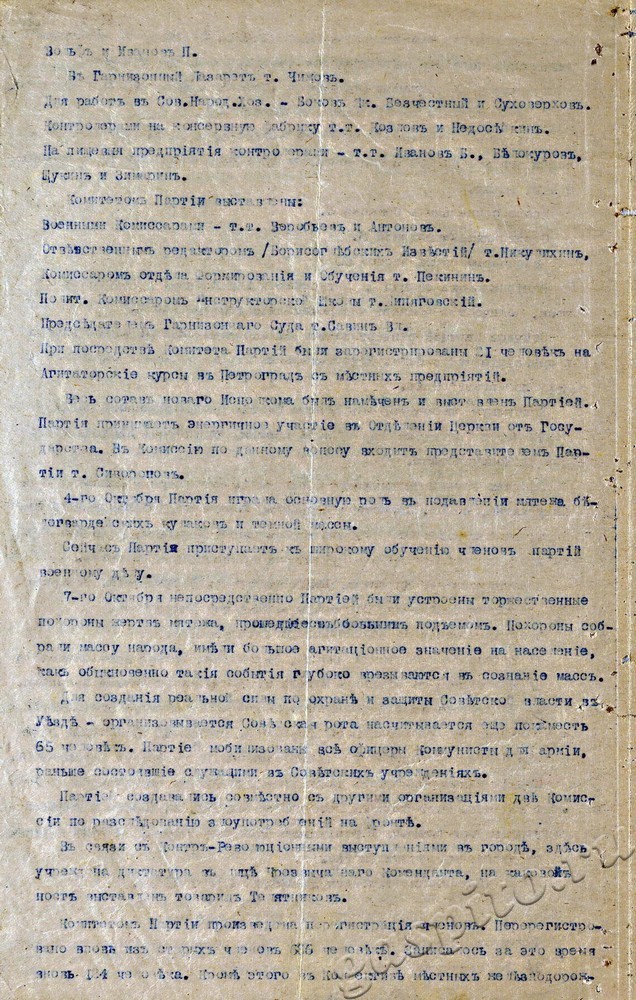 Вольбъ и Ивановъ П.
Въ Гарнизонный Лазаретъ т. Чижовъ.
Для работъ въ Сов.Народ.Хоз. - Боковъ Ик. Безчестный и Суховерховъ.
Контролерами на консервную фабрику т.т. Козловъ и Недосѣкинъ.
На пищевыя предпріятія контролерами - т.т. Ивановъ Б., Бѣлокуровъ,
Щукинъ и Зимаринъ.
Комитетомъ Партіи выставлены:
Военными Комиссарами - т.т. Воробьевъ и Антоновъ.
Отвѣтственнымъ редакторомъ /Борисоглѣбскихъ Извѣстій/ т.Никулихинъ,
Комиссаромъ отдѣла Формированія и Обученія т. Пекининъ.
Полит. Комиссаромъ Инструкторской Школы т.Липяговскій.
Предсѣдателемъ Гарнизоннаго Суда т.Савинъ Вл.
При посредствѣ Комитета Партій были зарегистрированы 21 человѣкъ на
Агитаторскіе курсы въ Петроградъ съ мѣстныхъ предпріятій.
Весь сотавъ новаго Исполкома былъ намѣченъ и выставленъ Партіей.
Партія принимаетъ энергичное участіе въ Отдѣленіи Церкви отъ Госу-
дарства. Въ Комиссію по данному вопосу входитъ представителемъ Пар-
тіи т. Сивороновъ.
4-го Октября Партія играла основную роль въ подавленіи мятежа бѣ-
логвардейскихъ кулаковъ и темной массы.
Сейчасъ Партія приступаетъ къ широкому обученію членовъ партій
военному дѣлу.
7-го Октября непосредственно Партіей были устроены торжественные
похороны жертвъ мятежа, прошедшіе съ большимъ подъемомъ. Похороны соб-
рали массу народа, имѣли большое агитаціонное значеніе на населеніе,
какъ обыкновенно такія событія глубоко врезываются въ сознаніе массъ.
Для созданія реальной силы по охранѣ и защиты Совѣтской власти въ
Уѣздѣ - организовывается Совѣтская рота насчитывается еще покамѣсть
65 человѣкъ. Партіей мобилизованы всѣ офицеры Коммунисты для арміи,
раньше состоявшіе служащими въ Совѣтскихъ учрежденіяхъ.
Партіей создавались совмѣстно съ другими организаціями двѣ Комис-
сіи по разслѣдованію злоупотребленій на фронтѣ.
Въ связи съ Контръ-Революціонными выступленіями въ городѣ, здѣсь
учреждена диктатура въ лицѣ Чрезвычайнаго Коменданта, на каковой
постъ выставленъ товарищъ Телятниковъ.
Комитетомъ Партіи произведена перегистрація членовъ. Перерегистро-
вано вновь изъ старыхъ членовъ человѣкъ. Записалось за это время
вновь 124 человѣка. Кромѣ этого въ Коллективѣ мѣстныхъ желѣзнодорож-